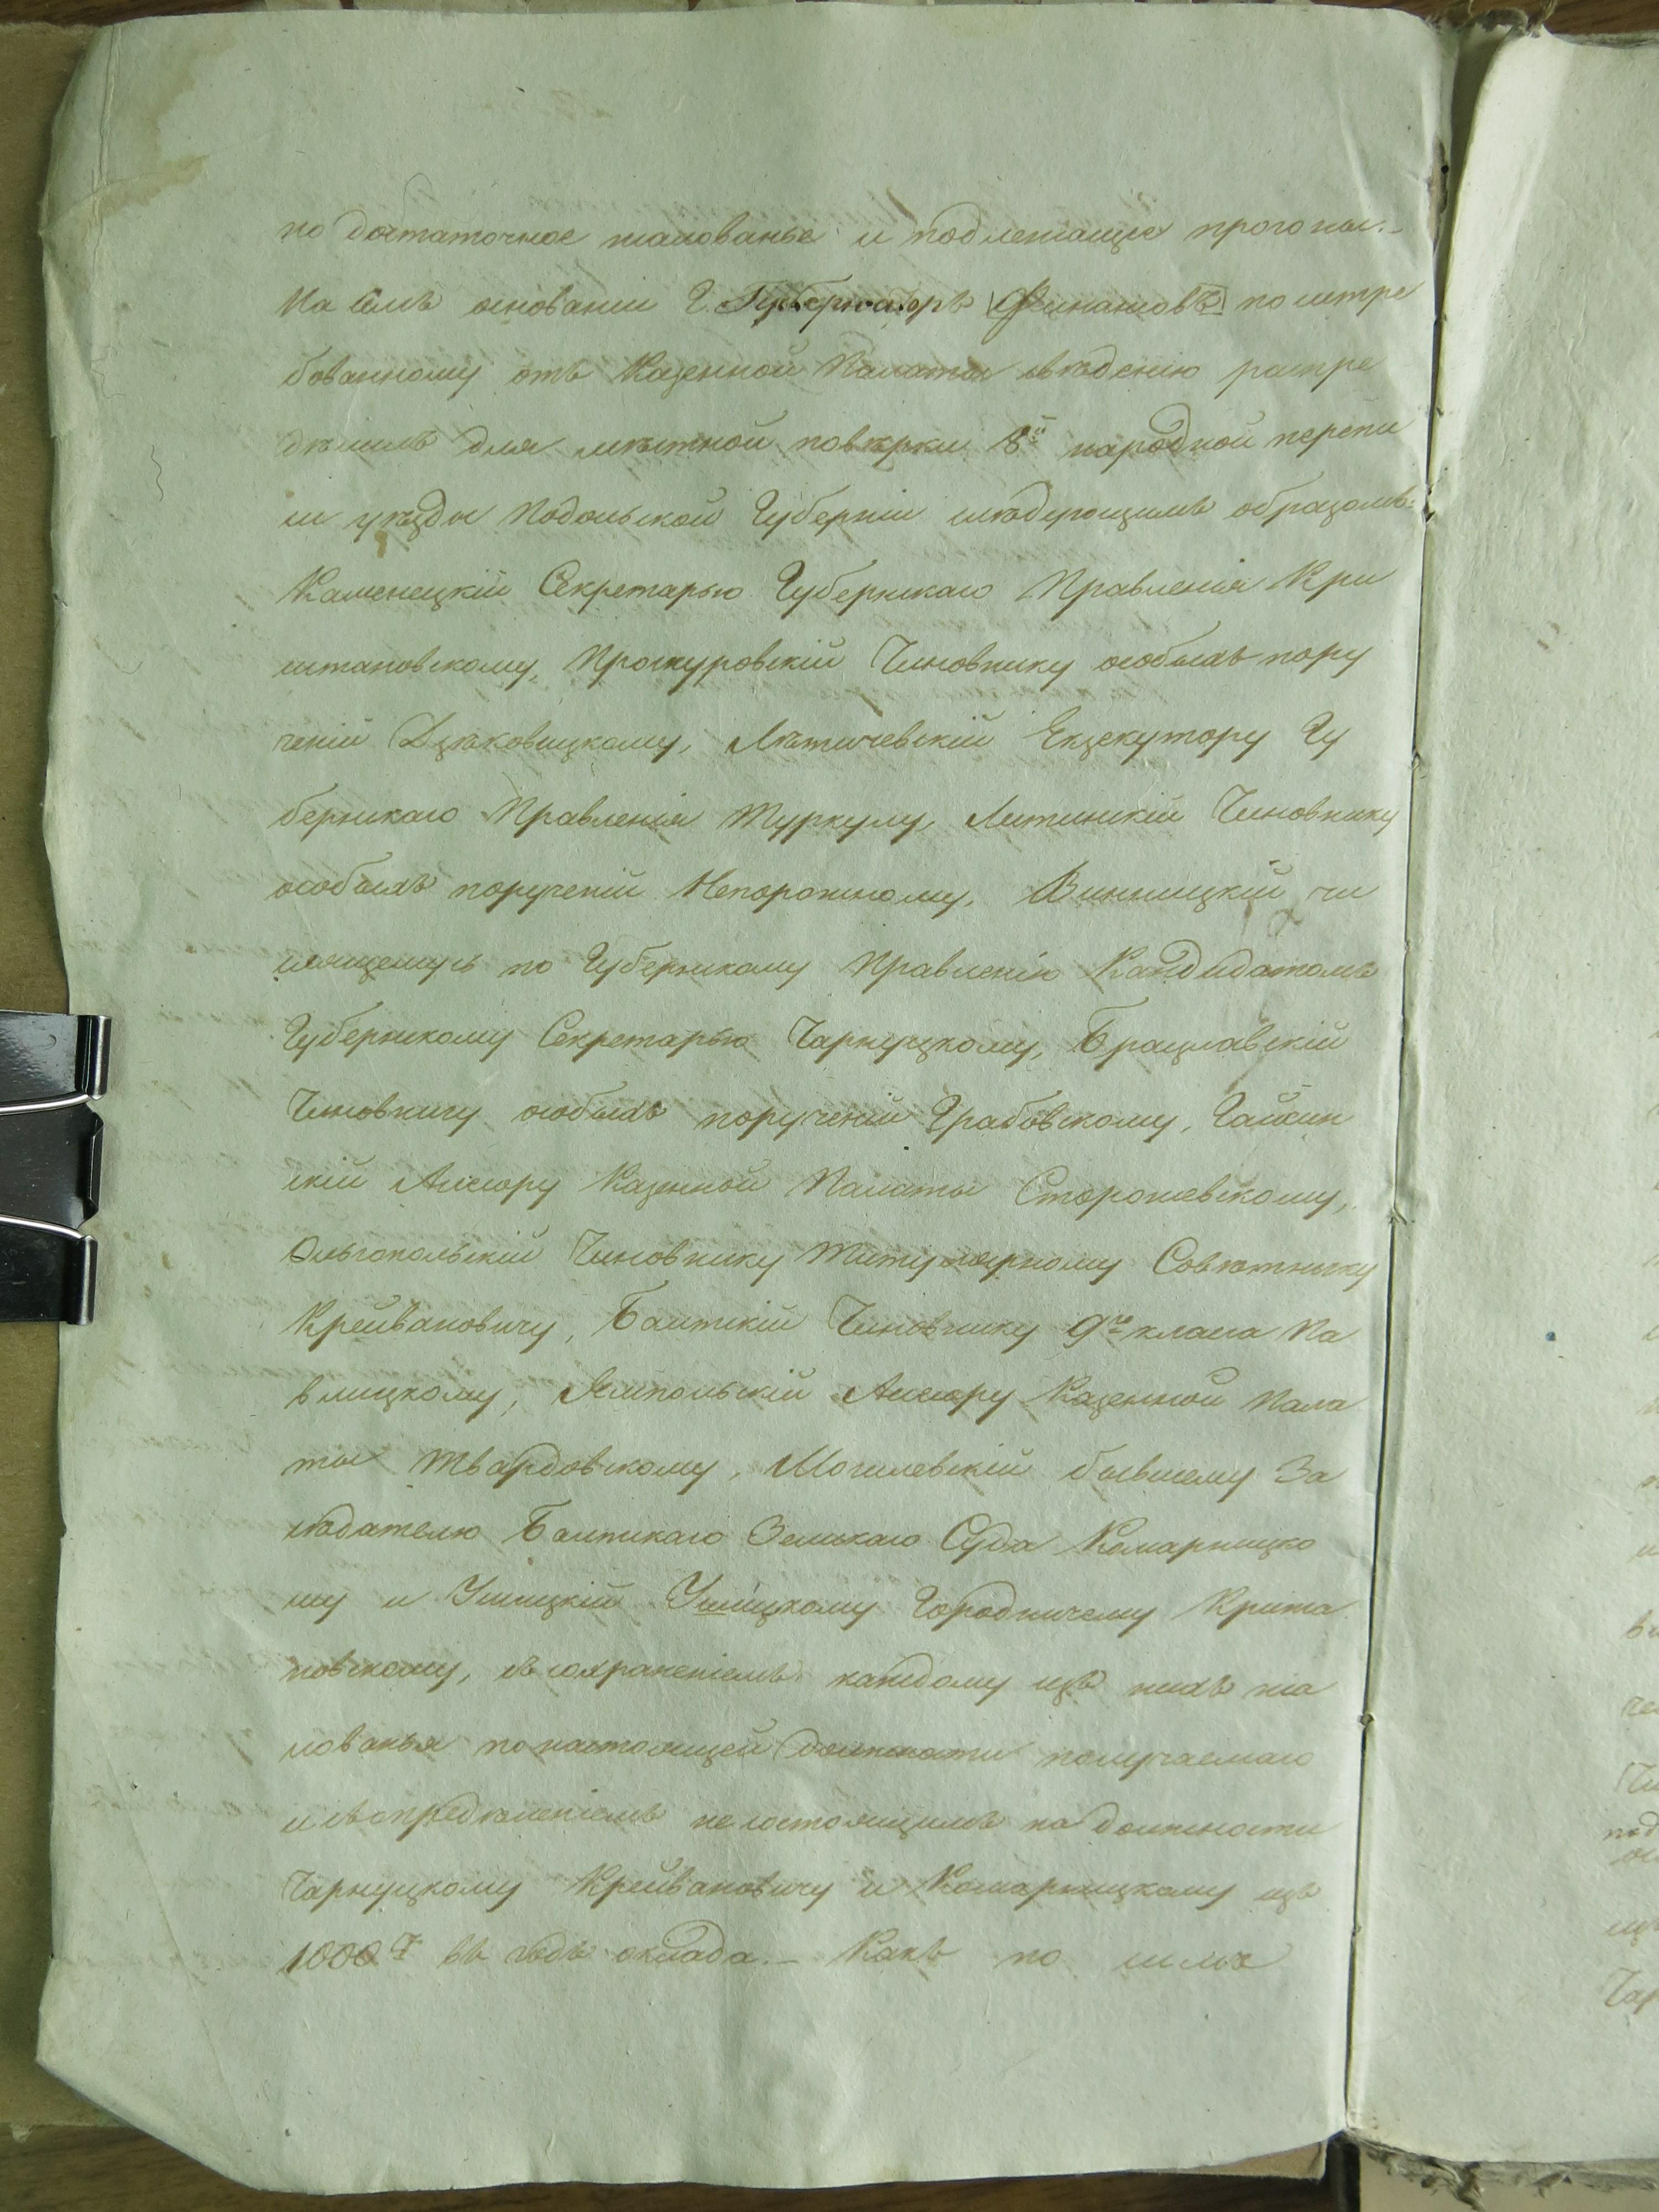 но достаточное жалованье и подлежащие прогоны.-
На семъ основаніи Г. Губернаторъ Финансовъ по истре
бованному отъ Казенной Палаты свѣденію распре
дѣлилъ для мѣстной повѣрки 8й народной перепи
си уѣзды Подольской Губерніи слѣдующимъ образомъ:
Каменецкій Секретарью Губернскаго Правленія Кри
штановскому, Проскуровскій Чиновнику особыхъ пору
ченій Дзѣковицкому, Лѣтичевскій Екзекутору Гу
бернскаго Правленія Туркулу, Литинскій Чиновнику
особыхъ порученій Непорожному, Винницкій чи
слящемусь по Губернскому Правленію Кандидатомъ
Губернскому Секретарью Чарнуцкому, Брацлавскій
Чиновнику особыхъ порученій Грабовскому, Гайсин
скій Ассесору Казенной Палаты Сторожевскому,
Ольгопольскій Чиновнику Титулярному Совѣтнику
Крейвановичу, Балтскій Чиновнику 9го класса Па
влицкому, Ямпольскій Ассесору Казенной Пала
ты Твардовскому, Могилевскій бывшему За
сѣдателю Балтскаго Земскаго Суда Комарницко
му и Ушицкій Ушицкому Городничему Криста
новскому, съ сохраненіемъ каждому изъ нихъ жа
лованья по настоящей должности получаемаго
и съ опредѣленіемъ не состоящимъ на должности
Чарнуцкому Крейвановичу и Комарницкому изъ
1000 р въ годъ оклада.- Какъ по